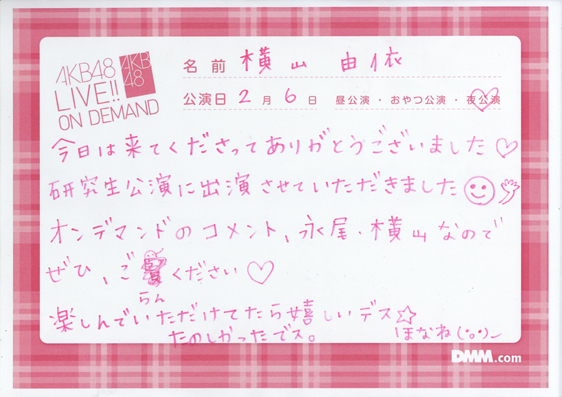 AKB48
LIVE!!
ON DEMAND
AKB
48
名前 横山 由依
公演日 2月6日 昼公演・おやつ公演・夜公演
今日は来てくださってありがとうございました♡
研究生公演に出演させていただきました
オンデマンドのコメント、永尾・横山なので
ぜひ、ご覧ください♡
らん
楽しんでいただけてたら嬉しいデス☆
たのしかったでス。 ほなね(°o°)~
DMM.com